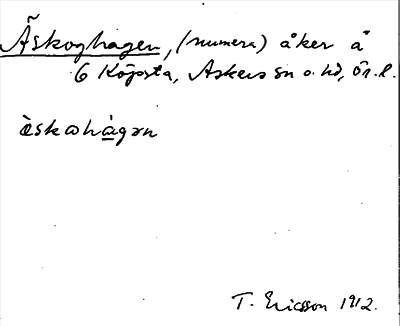 Äskoghagen, (numera) åker å
6 Köpsta, Askers sn o. hd, Ör. l.
èskωhàgən
T. Ericsson 1912.